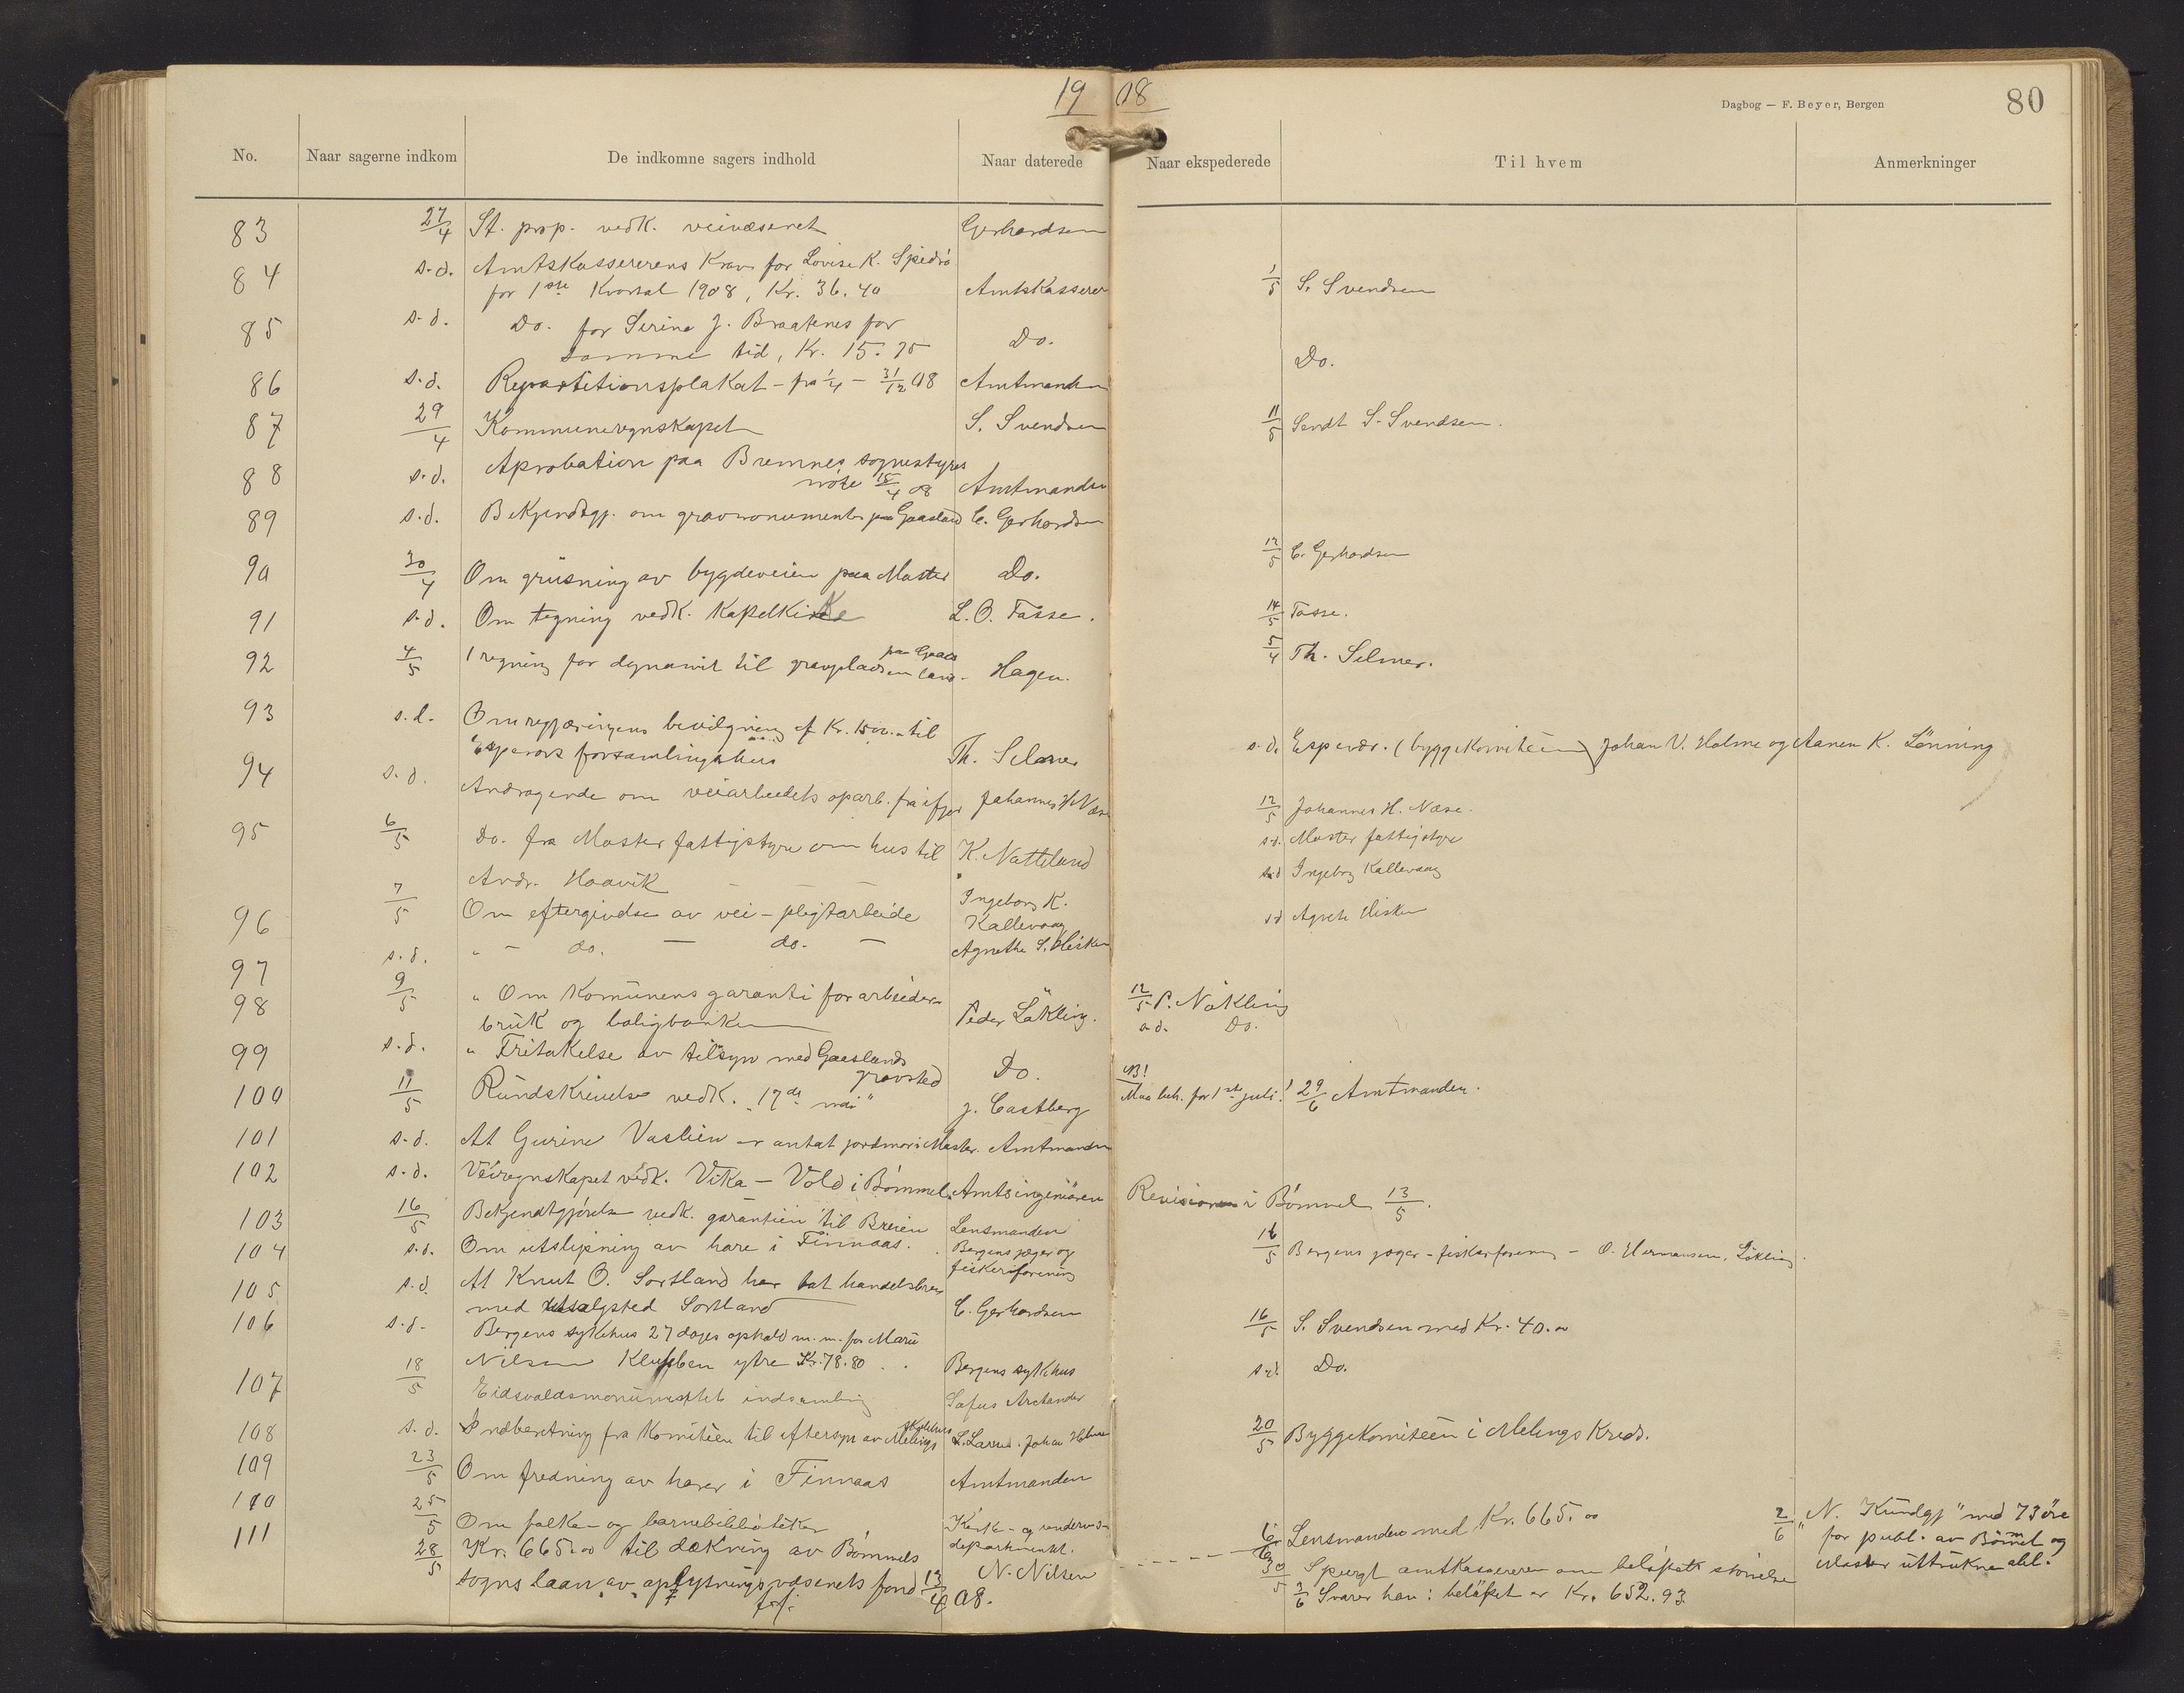 19 08
Dagbog — F. Beyer, Bergen
80
No. Naar sagerne indkom De indkomne sagers indhold Naar daterede Naar ekspederede Til hvem Anmerkninger
83 27/4 St. prop. vedk. veivæsenet Gerhardsen
84 s.d. Amtskassererens Krav for Lovise K. Spidsö
for 1ste Kvartal 1908, Kr. 36.40 Amtskasserer 1/5 S. Svendsen
85 s.d. Do. for Serine J. Braatenes for
samme tid, Kr. 15.75 Do. Do.
86 s.d. Repartitionsplakat - fra 1/4 - 31/12 08 Amtmanden
87 29/4 Kommuneregnskapet S. Svendsen 11/5 Sendt S. Svendsen.
88 s.d. Aprobation paa Bremnes sognestyres
möte 15/4 08 Amtmanden
89 s.d. Bekjendtgj. om gravmonumenter paa Gaasland C. Gerhardsen
90 30/4 Om grusning av bygdeveien paa Moster Do. 12/5 C. Gerhardsen
91 s.d. Om tegning vedk. Kapelkirke L. O. Tasse. 14/5 Tasse.
92 4/5 1 regning for dynamit til gravpladsen paa Gaasland - Hagen. 5/4 Th. Selmer.
93 s.d. Om regjæringens bevilgning af Kr. 1500.- til
Espeværs forsamlingshus Th. Selmer s.d. Espevær. (byggekomiteen) Johan V. Holme og Aanen K. Lönning
94 s.d. Andragende om veiarbeidets oparb. fra ifjor Johannes H. Næse 12/5 Johannes H. Næse.
95 6/5 Do. fra Moster fattigstyre om hus til K. Natteland s.d. Moster fattigstyre
Andr. Haavik
96 7/5 Om eftergivelse av vei-pligtarbeide Ingeborg K. Kallevaag s.d. Ingeborg Kallevaag
97 s.d. " - do. - do. - Agnethe S. Hisken s.d. Agnete Hisken
98 9/5 " Om Komunens garanti for arbeider-
bruk og boligbanken Peder Lökling. 12/5 P. Nökling
99 s.d. " Fritakelse av tilsyn med Gaaslands
gravsted Do. s.d. Do.
100 11/5 Rundskrivelse vedk. "17de mai" J. Castberg NB! Maa beh. før 1ste juli! 29/6 Amtmanden.
101 s.d. At Gurine Vaslien er antat jordmor i Moster. Amtmanden
102 s.d. Veiregnskapet vedk. Vika - Vold i Bömmel. Amtsingeniören Revisionen i Bömmel 13/5.
103 16/5 Bekjendtgjörelse vedk. garantien til Breien Lensmanden
104 s.d. Om utslipning av hare i Finnaas. Bergens jæger og
fiskeriforening 16/5 Bergens jæger-fiskerforening - O. Hermansen, Lökling.
105 s.d. At Knut O. Sortland har tat handelsbrev
med utsalgsted Sortland C. Gerhardsen
106 s.d. Bergens sykehus 27 dages ophold m.m. for Marie
Nilsen Klubben ytre Kr. 78.80 Bergens sykehus 16/5 S. Svendsen med Kr. 40.00
107 18/5 Eidsvoldsmonumentets indsamling Sofus Arctander s.d. Do.
108 s.d. Indberetning fra Komiteen til eftersyn av Melings skolehus L. Larsen. Johan Holme 20/5 Byggekomiteen i Melings Kreds.
109 23/5 Om fredning av harer i Finnaas Amtmanden
110 25/5 Om folke- og barnebibliotéker Kirke- og underv.s-
departementet.
111 28/5 Kr. 665.00 til dækning av Bömmels
sogns laan av oplysningsvæsenets fond 13/4 08. N. Nilsen
6/6 Lensmanden med Kr. 665.00
30/5 Spurgt amtkassereren om belöpets störrelse
3/6 Svarer han: belöpet er Kr. 652.93
2/6 "N. Kundgj" med 73 öre
for publ. av Bömmel og
Moster uttrukne abl.